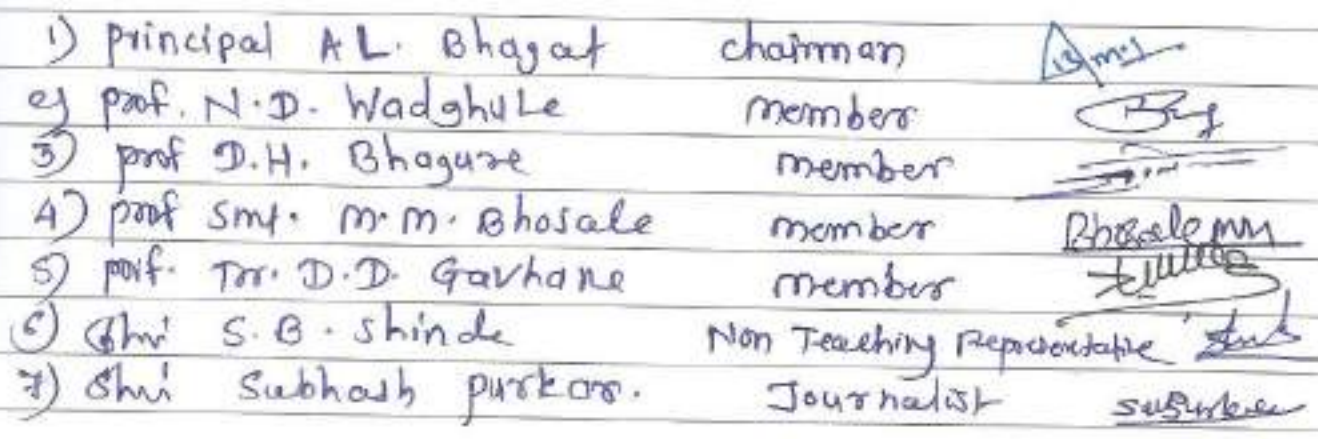 1) principal A L. Bhagat chairman
2) prof. N.D. Wadghule member
3) prof D.H. Bhagure member
4) prof Smt. M.M. Bhosale member Bhosale MM
5) prof. Dr. D.D. Gavhane member
6) Shri S.B. Shinde Non Teaching Representative
7) Shri Subhash purkar. Journalist